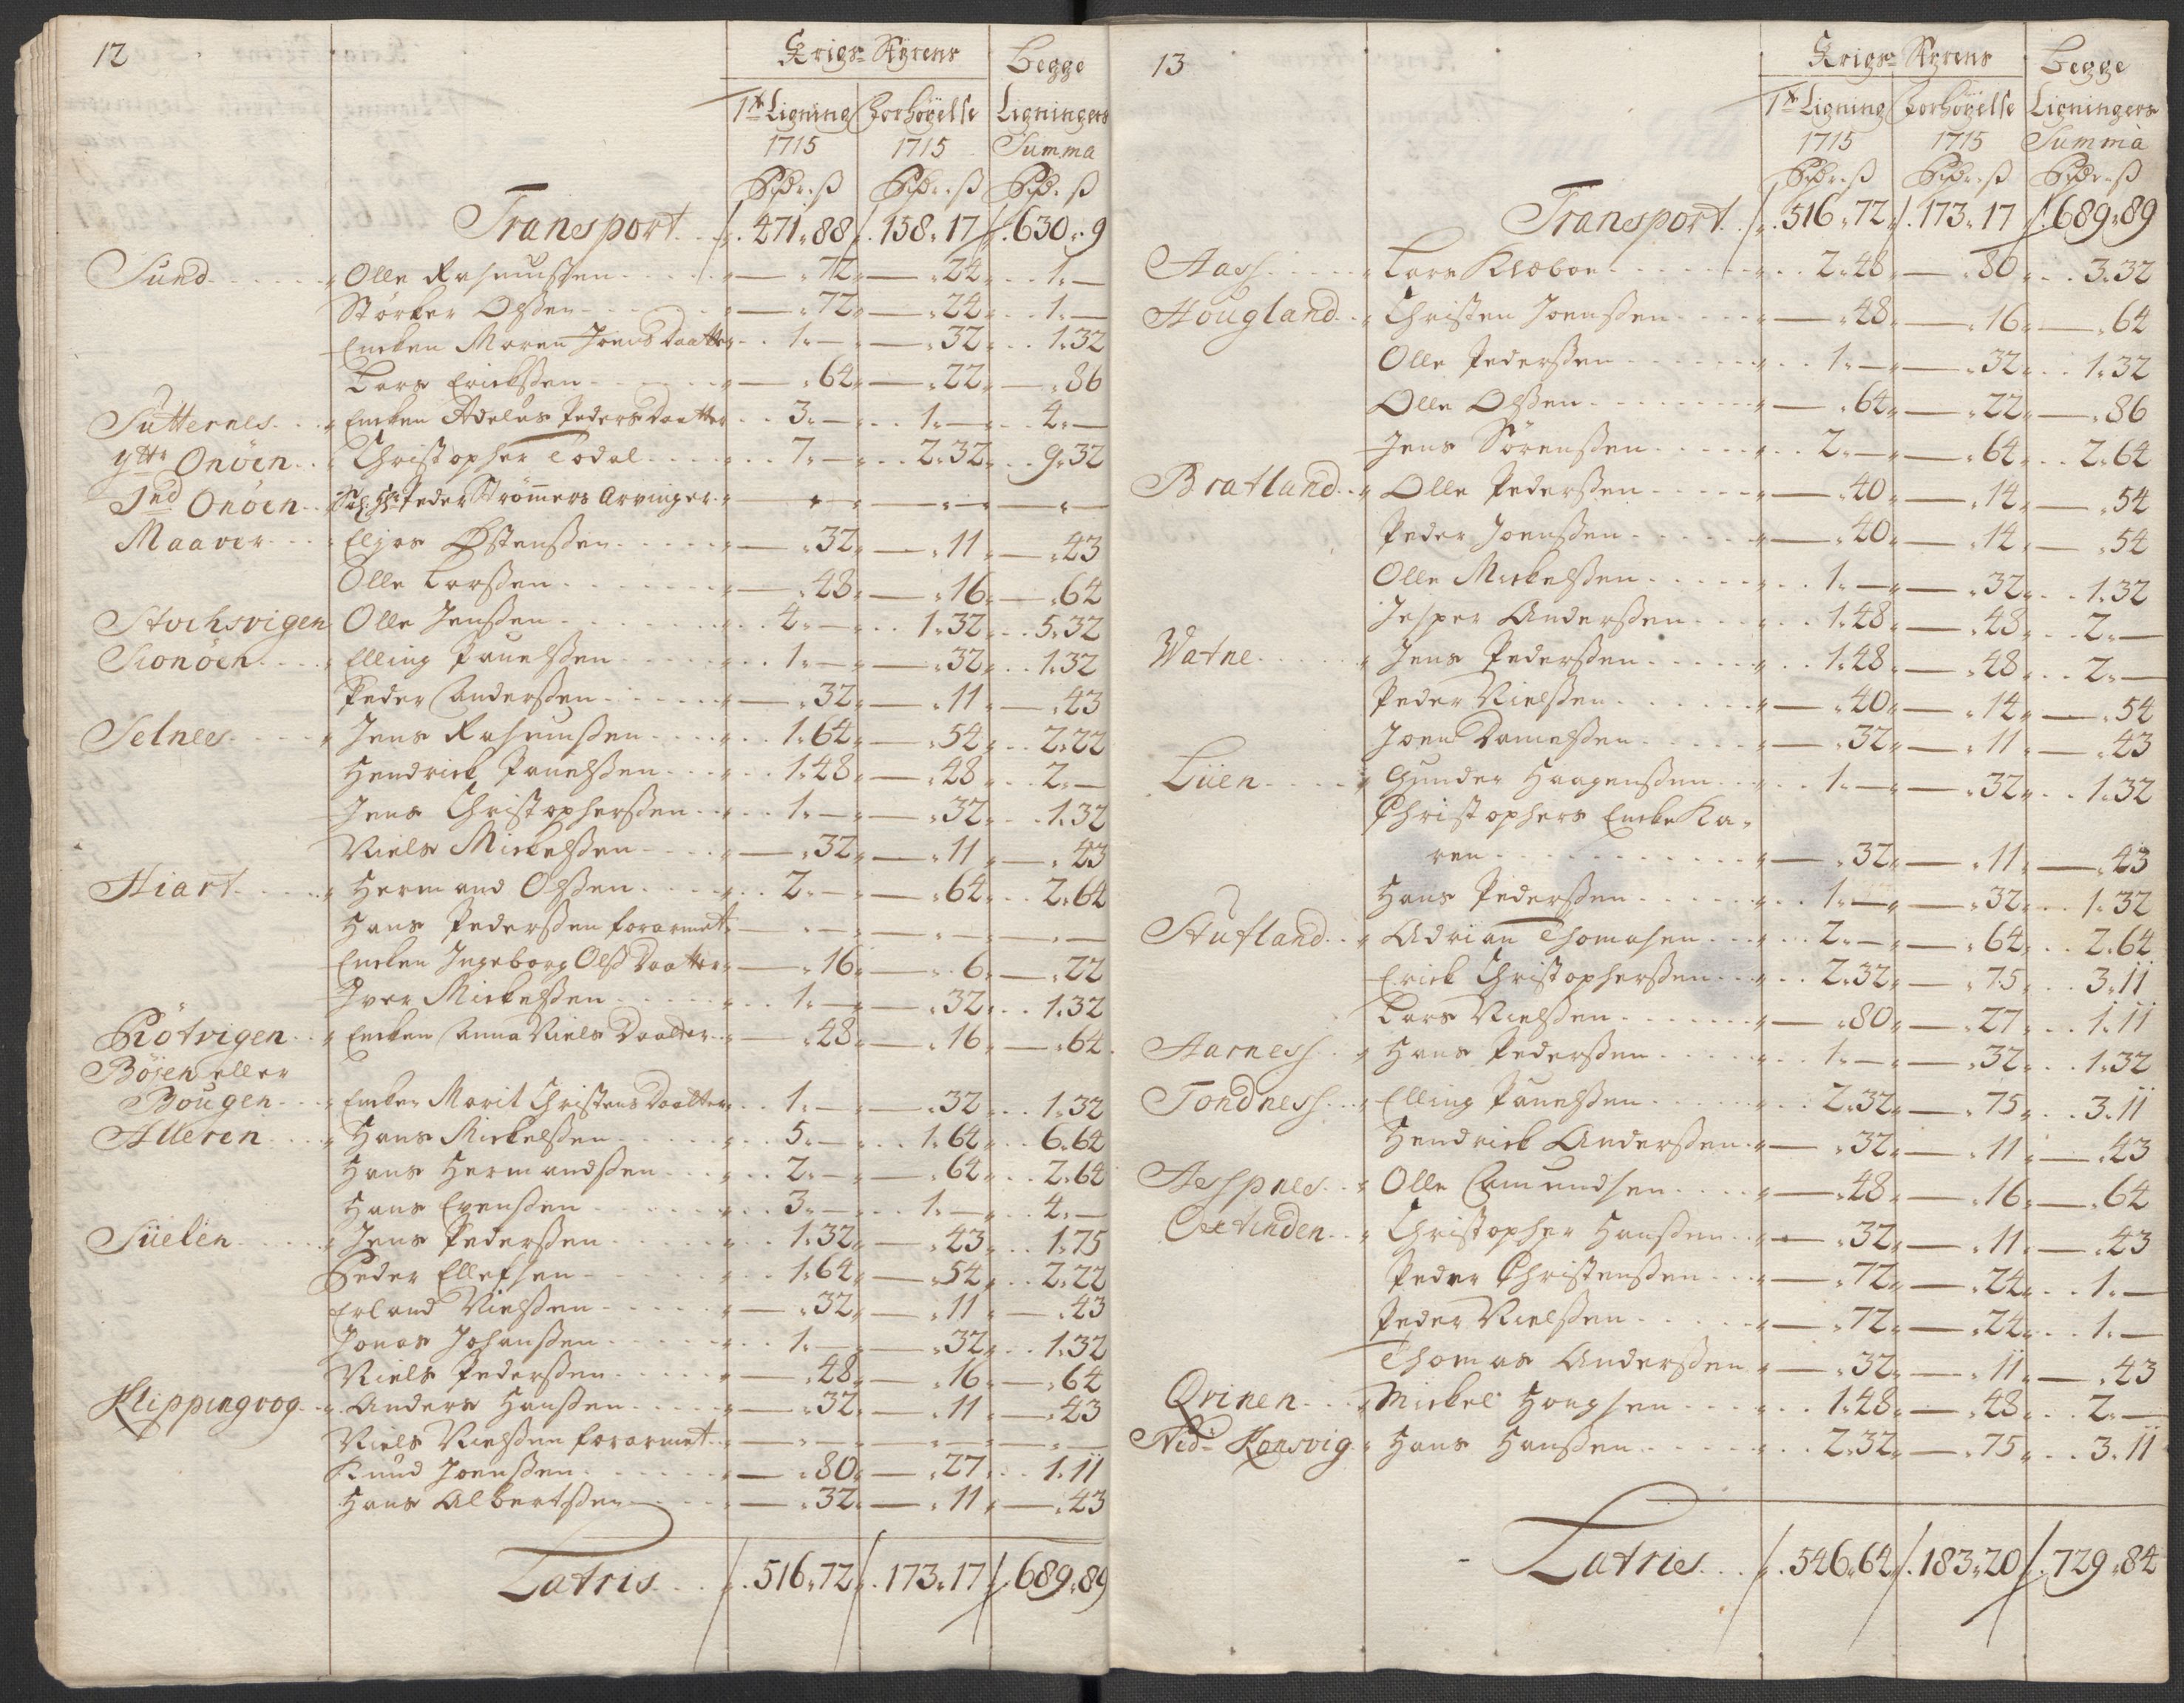 12
Krigs- Styrens Begge
1te Ligning Forhøyelse Ligningers
1715 1715 Summa
Rdr. ß Rdr. ß Rdr. ß
Transport 471 88 158 17 630 9
Sund Olle Rasmussen 72 24 1 —
Størker Olsen 72 24 1 —
Encken Maren Joens Daatter 1 — 32 1 32
Lars Ericksen 64 22 86
Sutternes Encken Adelus Peders Daatter 3 — 1 — 4 —
Yttr Onöen Christopher Todal 7 — 2 32 9 32
Ind Onöen Sal. Hr. Peder Strømmers Arvinger — — —
Maaver Elias Østensen 32 11 43
Olle Larsen 48 16 64
Stochsvigen Olle Jensen 4 — 1 32 5 32
Sionöen Elling Pauelsen 1 — 32 1 32
Peder Andersen 32 11 43
Selnes Jens Rasmussen 1 64 54 2 22
Hendrick Pauelsen 1 48 48 2 —
Jens Christophersen 1 — 32 1 32
Niels Mickelsen 32 11 43
Hiart Hermand Olsen 2 — 64 2 64
Hans Pedersen forarmet — — —
Encken Ingeborg Ols Daatter 16 6 22
Iver Mickelsen 1 — 32 1 32
Kiötvigen Encken Anna Niels Daatter 48 16 64
Böjen eller
Bougen Encken Marit Christens Daatter 1 — 32 1 32
Alleren Hans Mickelsen 5 — 1 64 6 64
Hans Hermandsen 2 — 64 2 64
Hans Evensen 3 — 1 — 4 —
Süelen Jens Pedersen 1 32 43 1 75
Peder Ellefsen 1 64 54 2 22
Erland Nielsen 32 11 43
Jonas Johansen 1 — 32 1 32
Niels Pedersen 48 16 64
Klippingvog Anders Hansen 32 11 43
Niels Nielsen forarmet — — —
Knud Joensen 80 27 1 11
Hans Albertsen 32 11 43
Latris 516 72 173 17 689 89
13
Krigs- Styrens Begge
1te Ligning Forhøyelse Ligningers
1715 1715 Summa
Rdr. ß Rdr. ß Rdr. ß
Transport 516 72 173 17 689 89
Aass Lars Klæboe 2 48 80 3 32
Hougland Christen Joensen 48 16 64
Olle Pedersen 1 — 32 1 32
Olle Olsen 64 22 86
Jens Sørensen 2 — 64 2 64
Bratland Olle Pedersen 40 14 54
Peder Joensen 40 14 54
Olle Mickelsen 1 — 32 1 32
Jesper Andersen 1 48 48 2 —
Watne Jens Pedersen 1 48 48 2 —
Peder Nielsen 40 14 54
Joen Danielsen 32 11 43
Lüen Gunder Haagensen 1 — 32 1 32
Christophers Encke Ka-
ren 32 11 43
Hans Pedersen 1 — 32 1 32
Stufland Adrian Thomasen 2 — 64 2 64
Erick Christophersen 2 32 75 3 11
Lars Nielsen 80 27 1 11
Aarness Hans Pedersen 1 — 32 1 32
Tondness Elling Pauelsen 2 32 75 3 11
Hendrick Andersen 32 11 43
Aespnes Olle Amundsen 48 16 64
Oxtinden Christopher Hansen 32 11 43
Peder Christensen 72 24 1 —
Peder Nielsen 72 24 1 —
Thomas Andersen 32 11 43
Qvinen Mickel Hougsen 1 48 48 2 —
Ned- Konsvig Hans Hansen 2 32 75 3 11
Latris 546 64 183 20 729 84